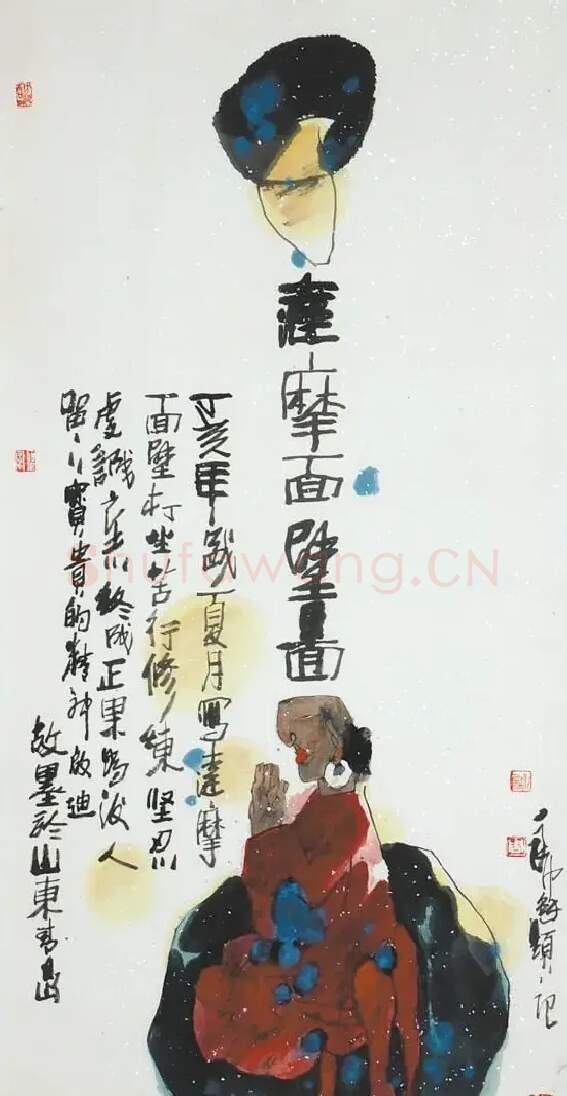 達摩面壁圖
丁亥年歲夏月寫達摩
面壁打坐苦行修練坚忍
虔誠之心終成正果為後人
留下寶貴的精神啟迪
敬墨於山東青島
Shufawang.CN